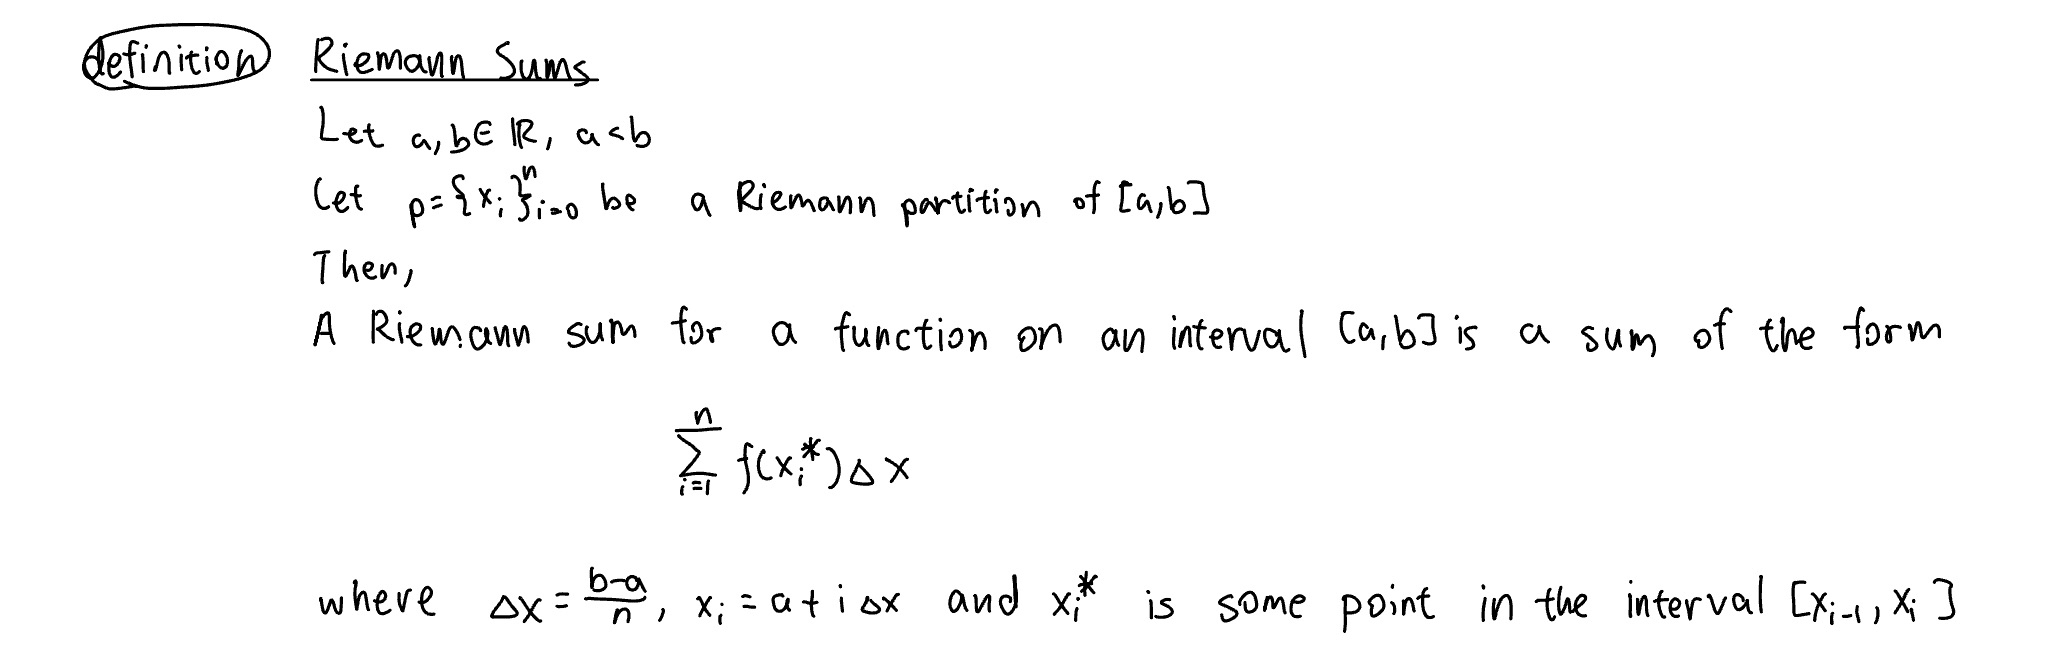 definition Riemann Sums
Let a, b ∈ ℝ, a < b
Let p = {xᵢ}ⁿᵢ₌₀ be a Riemann partition of [a,b]
Then,
A Riemann sum for a function on an interval [a,b] is a sum of the form
∑ⁿᵢ₌₁ f(xᵢ*) Δx
where Δx = (b-a)/n, xᵢ = a + i Δx and xᵢ* is some point in the interval [xᵢ₋₁, xᵢ]